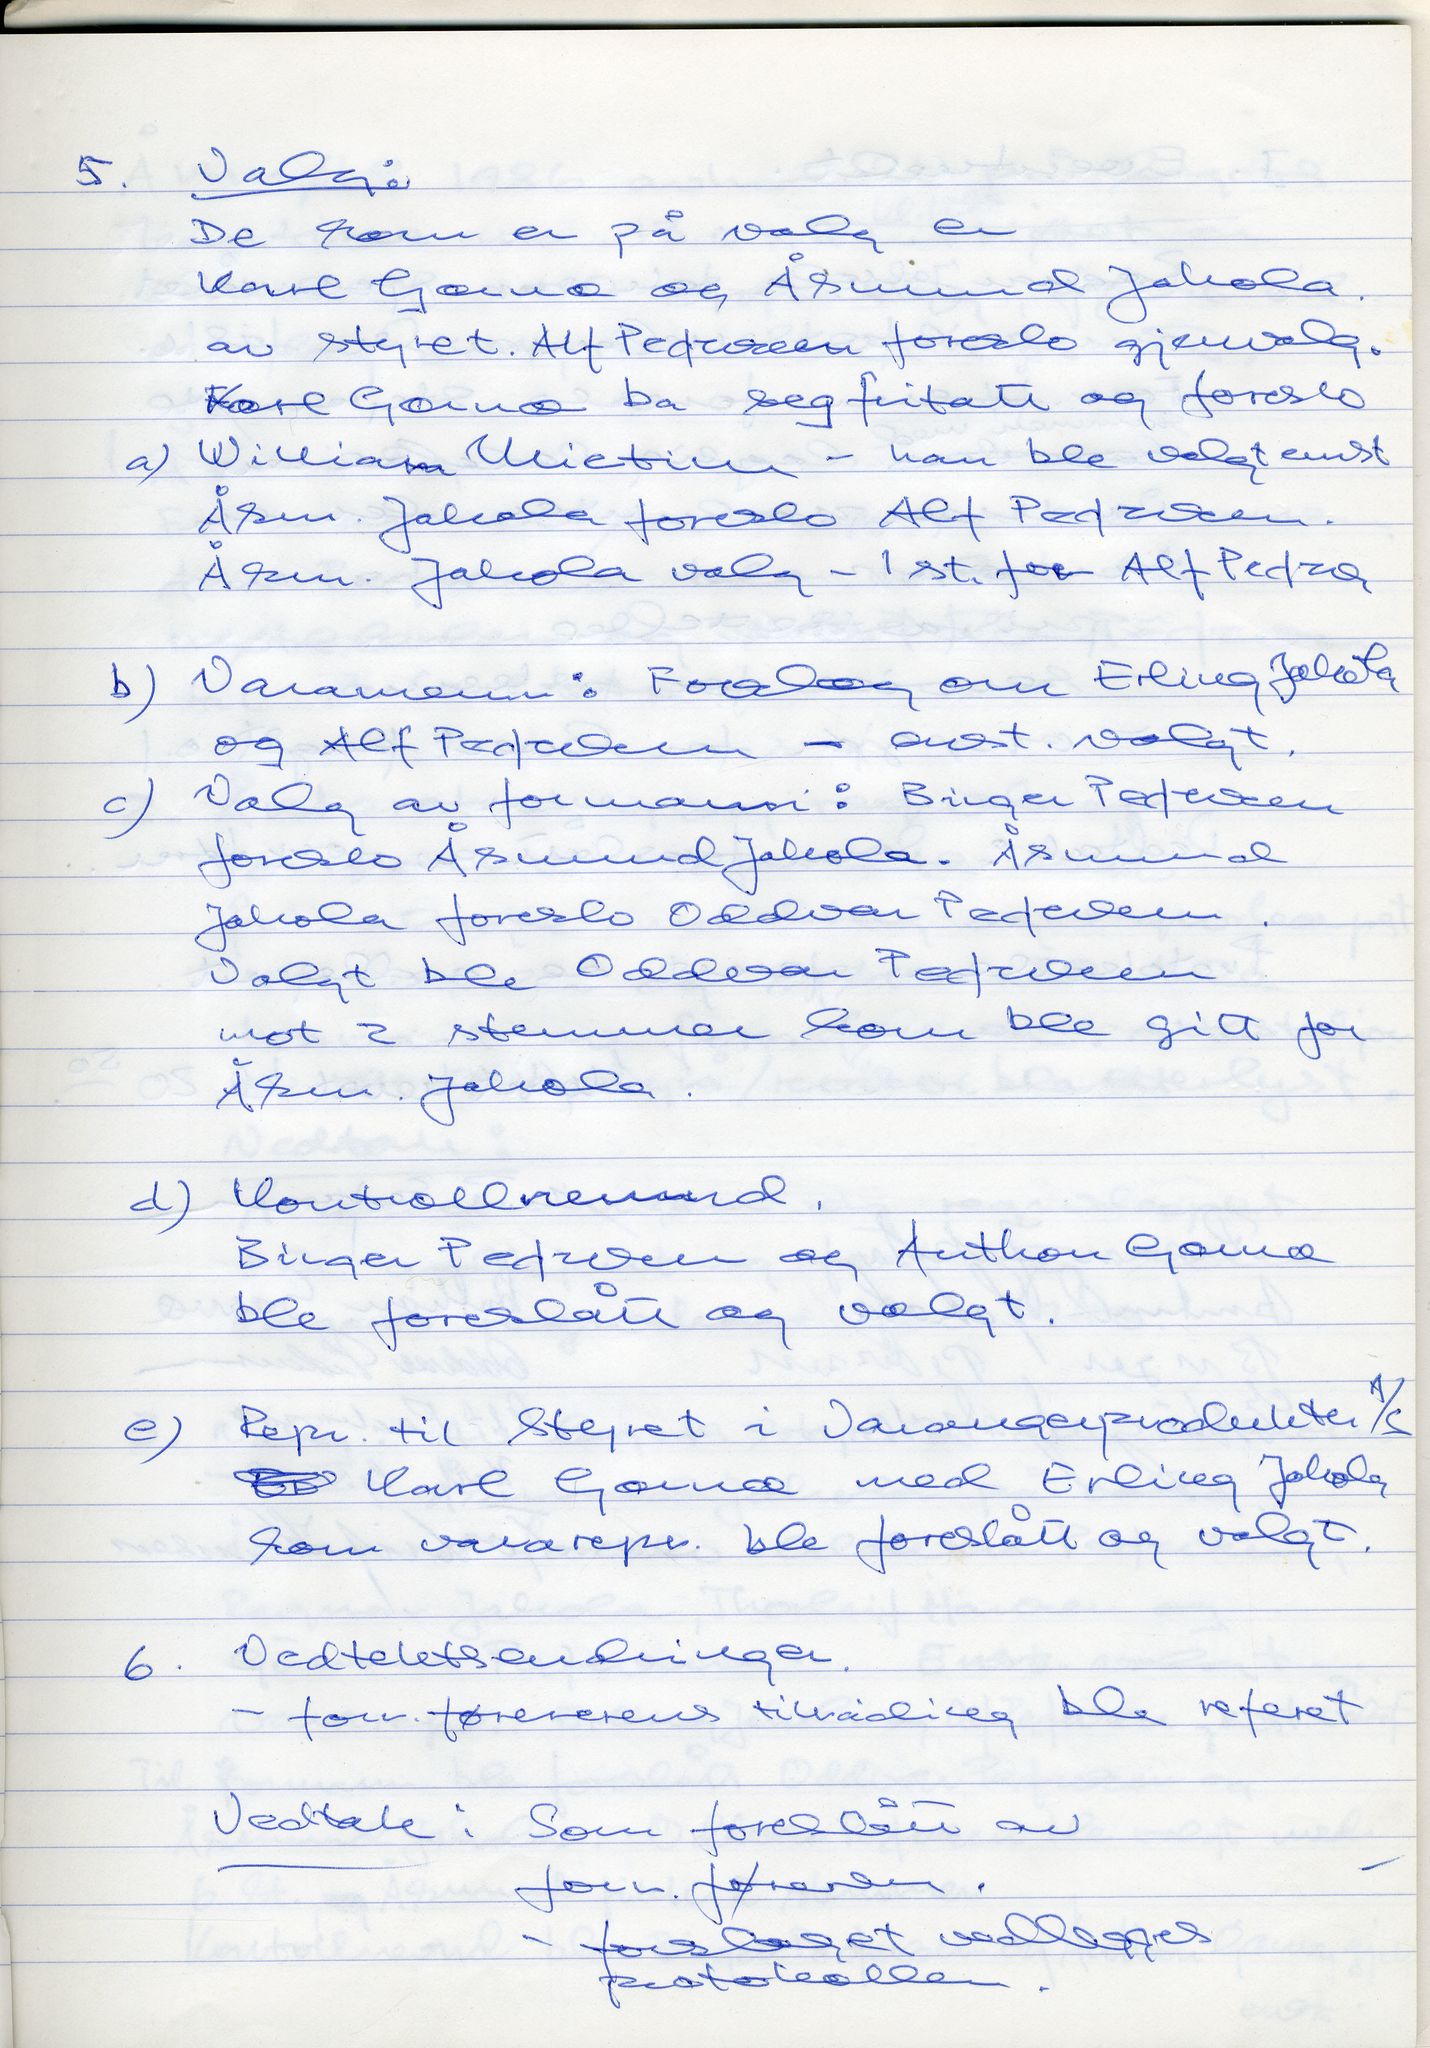 5. Valg:
De som er på valg er
Karl Gorno og Åsmund Jakola.
av styret. Alf Pedersen foreslo gjenvalg.
Karl Gorno ba seg fritatt og foreslo
a) William - han ble valgt enst
Åsm. Jakola foreslo Alf Pedersen.
Åsm. Jakola valg - 1 st. for Alf Peders
b) Varamenn: Forslag om Erling Jakola
og Alf Pedersen - enst. valgt.
c) Valg av formann: Birger Pedersen
foreslo Åsmund Jakola. Åsmund
Jakola foreslo Oddvar Pedersen.
Valgt ble Oddvar Pedersen
mot 2 stemmer som ble gitt for
Åsm. Jakola.
d) Kontrollnemnd.
Birger Pedersen og Anthon Gorno
ble foreslått og valgt.
e) Repr. til styret i Varangerprodukter A/S
Karl Gorno med Erling Jakola
som vararepr. ble foreslått og valgt.
6. Vedtektsendringer.
- forr. førerens tilråding ble referet
Vedtak: Som foreslått av
forr. føreren.
- forslaget vedlegges
protokollen.